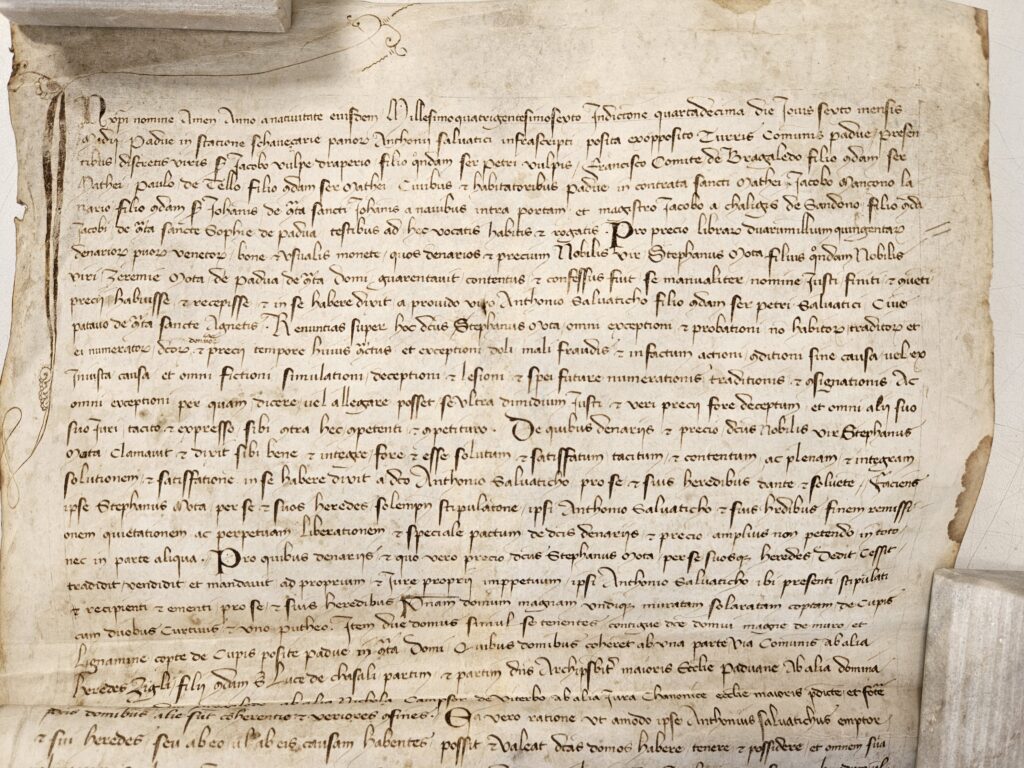 xpi nomine Amen Anno a nativitate eiusdem Millesimoquatrigentesimosexto Indictione quartadecima die Iovis sexto mensis
Madii Padue in statione scharçarie panor Anthonii Salvatici infrascripti posita exopposito Turris Comunis Padue / Presen
tibus discretis viris ser Iacobo vulpe draperio filio qondam ser Petri vulpis / Francisco Comite de Bragaledo filio qdam ser
Mathei Paulo de Tello filio qdam ser Mathei Civibus & habitatoribus Padue in contrata sancti Mathei Iacobo Mançono la
nario filio qdam ser Iohanis de qta sancti Iohanis a navibus intra portam et magistro Iacobo a chaligis de Sandono filio qda
Iacobi de qta sancte Sophie de Padua testibus ad hec vocatis habitis & rogatis Pro precio librar duarummillium quingentar
denarior pvor venetor bone & usualis monete quos denarios & precium Nobilis vir Stephanus Mota filius qondam Nobilis
viri Zeremie Mota de Padua de qta domi guarentavit contentus & confessus fuit se manualiter nomine iusti finiti & qveti
precii habuisse & recepisse & in se habere dixit a provido viro Anthonio Salvaticho filio qdam ser Petri Salvatici Cive
patavo de qta sancte Agnetis Renuncias super hoc dcus Stephanus Mota omni exceptioni & probationi no habitor traditor et
ei numerator dcor denarior & precii tempore huius qctus et exceptioni doli mali fraudis & infactum actioni qditioni sine causa vel ex
iniusta causa et omni fictioni simulationi deceptioni & lesioni & spei future numerationis traditionis & qsignationis Ac
omni exceptioni per quam dicere vel allegare posset se ultra dimidium iusti & veri precii fore deceptum et omni alii suo
suo iuri tacito & expresso sibi qtra hec qpetenti & qpetituro De quibus denariis & precio dcus Nobilis vir Stephanus
Mota Clamavit & dixit sibi bene & integre fore & esse solutum & satisfatum tacitum & contentum ac plenam & integram
solutionem & satisfatione in se habere dixit a dco Anthonio Salvaticho pro se & suis heredibus dante & solvete Faciens
ipse Stephanus Mota per se & suos heredes solempni stipulatone ipsi Anthonio Salvaticho & suis hrdibus finem remissi
onem quietationem ac perpetuam liberationem & speciale pactum de dcis denariis & precio amplius non petendo in toto
nec in parte aliqua Pro quibus denariis & quo vero precio dcus Stephanus Mota per se suosq heredes Dedit Cessit
tradidit vendidit et mandavit ad proprium & iure proprii imppetuum ipsi Anthonio Salvaticho ibi presenti stipulati
& recipienti & ementi pro se & suis heredibus Unam domum magnam undiq muratam solaratam coptam de Cupis
cum duobus Curtivis & uno putheo Item due domus simul se tenentes contigue dce domui magne de muro et
Lignamine copte de Cupis posite Padue in qta domi Quibus domibus coheret ab una parte via Comunis ab alia
heredes filii qdam ser Luce de chasali partim & partim dnus Archipsbiter maioris Ecclie Paduane Ab alia domina
Nichola de Viterbo ab alia iura Chanonice ecclie maioris pdicte et forte
domibus alie sut coherentie & veriores qfines Ea vero ratione ut amodo ipse Anthonius Salvatichus emptor
& sui heredes seu ab eo vl ab eis causam habentes possit & valeat dcas domos habere tenere & possidere et omnem sua